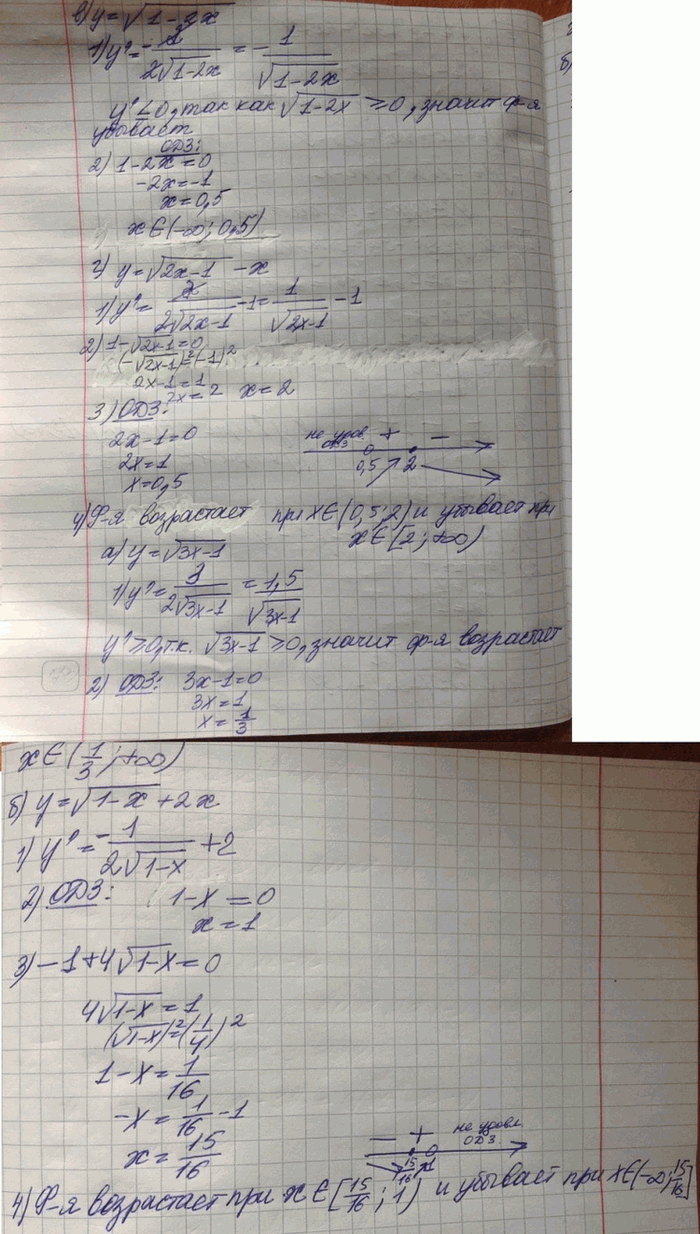 в) y = √(1-2x)
1) y' = -2/(2√(1-2x)) = -1/√(1-2x)
y' ≤ 0, так как √(1-2x) ≥ 0, значит ф-я
убывает
ОДЗ:
2) 1-2x = 0
-2x = -1
x = 0,5
x ∈ (-∞; 0,5)
г) y = √(2x-1) - x
1) y' = 2/(2√(2x-1)) - 1 = 1/√(2x-1) - 1
2) 1-√(2x-1) = 0
(-√(2x-1))² = (-1)²
2x-1 = 1
2x = 2 x = 2
3) ОДЗ:
2x-1 = 0
2x = 1
x = 0,5
не удовл. + -
ОДЗ
0,5 2
4) Ф-я возрастает при x ∈ (0,5; 2) и убывает при
x ∈ [2; +∞)
а) y = √(3x-1)
1) y' = 3/(2√(3x-1)) = 1,5/√(3x-1)
y' ≥ 0, т.к. √(3x-1) ≥ 0, значит ф-я возрастает
2) ОДЗ: 3x-1 = 0
3x = 1
x = 1/3
x ∈ (1/3; +∞)
б) y = √(1-x) + 2x
1) y' = -1/(2√(1-x)) + 2
2) ОДЗ: 1-x = 0
x = 1
3) -1+4√(1-x) = 0
4√(1-x) = 1
(√(1-x))² = (1/4)²
1-x = 1/16
-x = 1/16 - 1
x = 15/16
- + не удовл.
ОДЗ
15/16 1
4) Ф-я возрастает при x ∈ [15/16; 1) и убывает при x ∈ (-∞; 15/16]